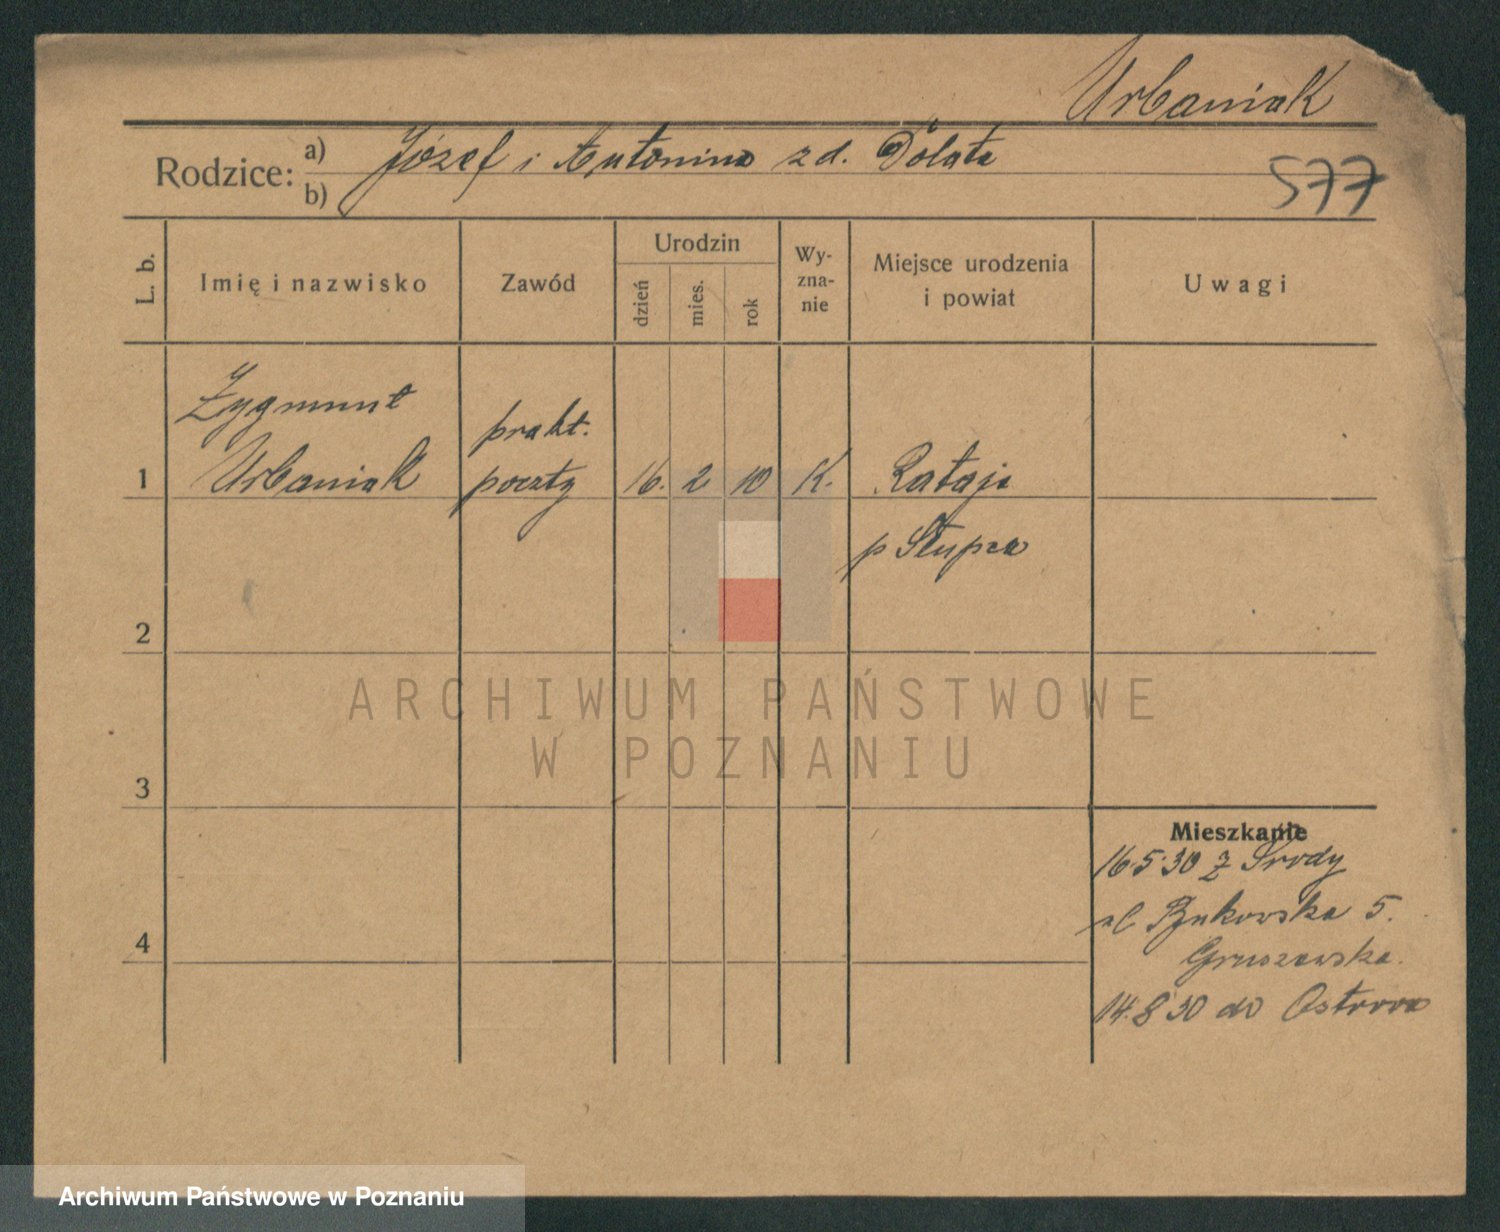 Urbaniak
Rodzice: a) Józef i Antonina zd. Dolata
b)
577
L. b.
Imię i nazwisko
Zawód
Urodzin
dzień
mies.
rok
Wy-
zna-
nie
Miejsce urodzenia
i powiat
Uwagi
Zygmunt
prakt.
1 Urbaniak poczty 16. 2 10 K. Rataje
p Słupca
2
3
4
ARCHIWUM PAŃSTWOWE
W POZNANIU
Mieszkanie
16.5.30 z Środy
ul Bukowska 5.
Gruszewska.
14.8 30 do Ostrowa
Archiwum Państwowe w Poznaniu